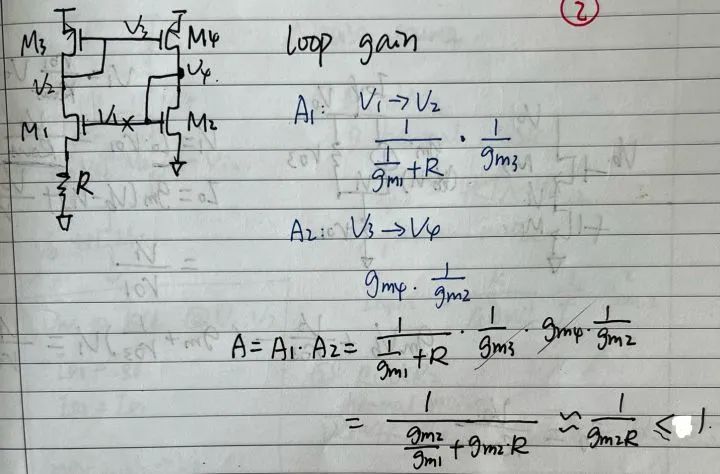 ②
M3 V3 M4
V2 V4
M1 V1 × M2
R
loop gain
A1: V1 → V2
1 / (1/gm1 + R) · 1/gm3
A2: V3 → V4
gm4 · 1/gm2
A = A1 · A2 = 1 / (1/gm1 + R) · 1/gm3 · gm4 · 1/gm2
= 1 / (gm2/gm1 + gm2·R) ≈ 1/gm2R ≤ 1.